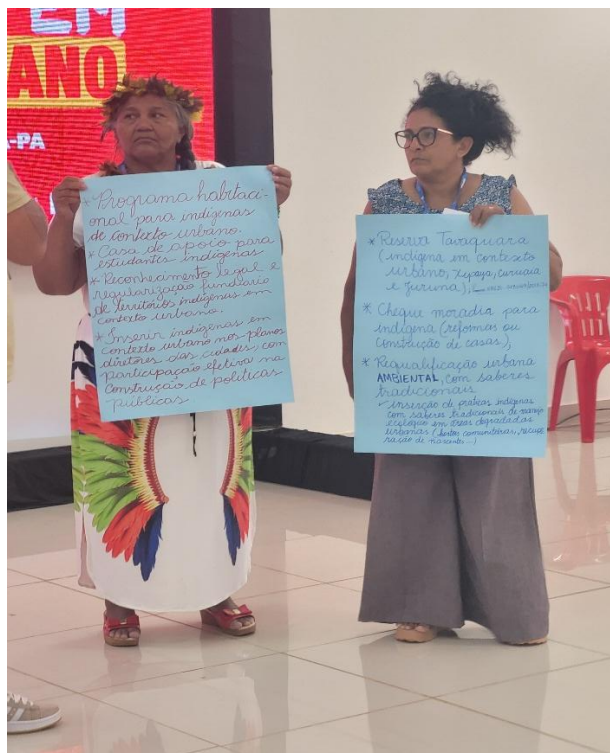 EM
ANO
-PA
* Programa habitaci-
onal para indígenas
de contexto urbano.
* Casa de apoio para
estudantes indígenas
* Reconhecimento legal e
regularização fundiário
de territórios indígenas em
contexto urbano.
* Inserir indígenas em
contexto urbano nos planos
diretores das cidades, com
participação efetiva na
construção de políticas
públicas
* Reserva Tavaquara
(indígena em contexto
urbano, xipaya, curuaia
e juruna),
* Cheque moradia para
indígena (reformas ou
construção de casas),
* Requalificação urbana
AMBIENTAL, com saberes
tradicionais.
inserção de práticas indígenas
com saberes tradicionais de manejo
ecológico em áreas degradadas
urbanas (hortas comunitárias, recupe
ração de nascente...)